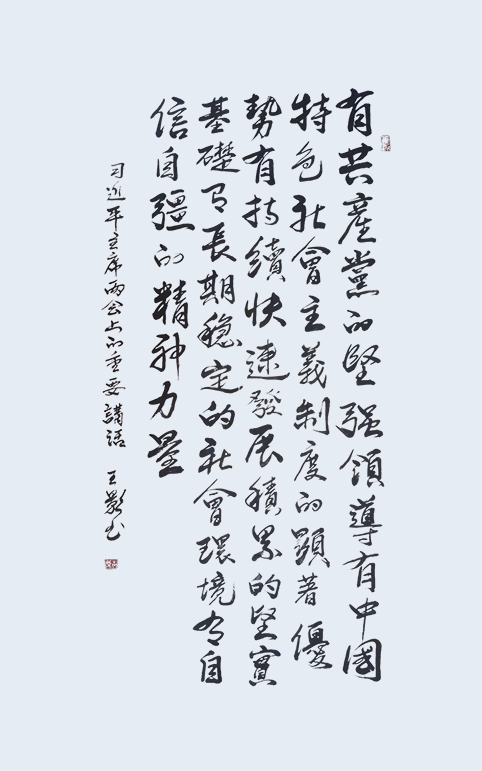 有共產黨的堅强領導有中國
特色社會主義制度的顯著優
勢有持續快速發展積累的堅實
基礎有長期穩定的社會環境有自
信自强的精神力量
习近平主席两会上的重要講話 王影书